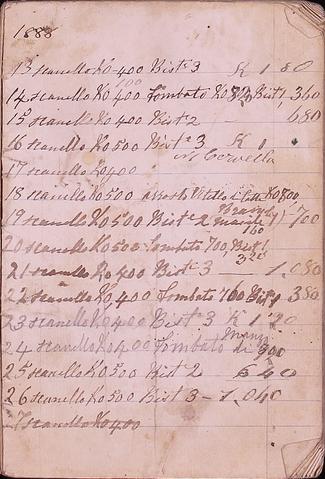 1888
13 scanello Ko 400 Bist.e 3 K 1 80
14 scanello Ko 400 Lombato Ko Bist 1, 360
15 scanello Ko 400 Bist.e 2 — 680
16 scanello Ko 500 Bist.e 3 K 1
Cervella
17 scanello Ko 400
18 scanello Ko 500 Vitello Ko 800
19 scanello Ko 500 Bist.e 2 700
160
20 scanello Ko 500 Lombato 700 Bist 1
320
21 scanello Ko 400 Bist.e 3 — 1,080
22 scanello Ko 400 Lombato 760 Bist 1 380
23 scanello Ko 400 Bist.e 3 K 1 20
Manzo
24 scanello Ko 400 Lombato di 900
25 scanello Ko 500 Bist 2
26 scanello Ko 500 Bist 3 — 1,040
27 scanello Ko 400